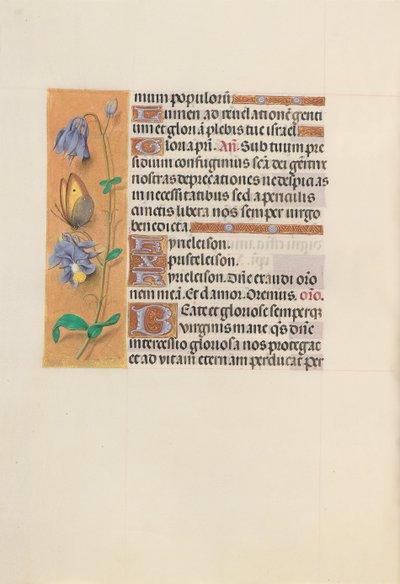 mum populorū
Lumen ad reuelationē genti
um et gloriā plebis tue israel
Gloria pri. Añ. Sub tuum pre
sidium confugimus scā dei genitrix
nostras deprecationes ne despicias
in necessitatibus sed a periculis
cunctis libera nos semper virgo
benedicta.
Kyrieleison.
Xpisteleison.
Kyrieleison. Dñe exaudi orō
nem meā. Et clamor. Oremus. orō.
Beate et gloriose semperqʒ
virginis marie qs dñe
intercessio gloriosa nos protegat
et ad vitam eternam perducat per